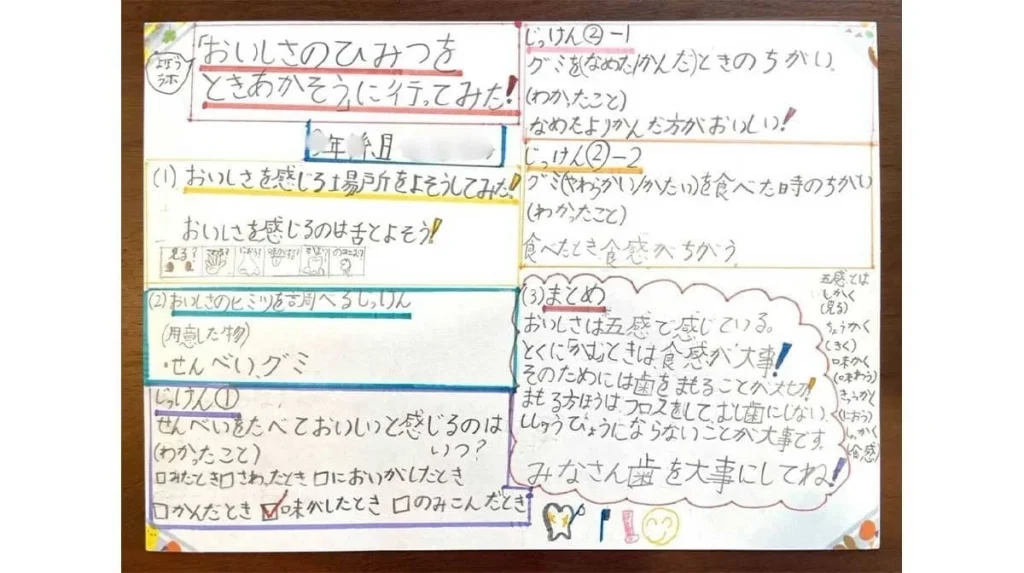 よぼう
ラボ
「おいしさのひみつを
ときあかそう」に行ってみた!
年 組
(1) おいしさを感じる場所をよそうしてみた!
おいしさを感じるのは舌とよそう!
見る?
(2) おいしさのヒミツを調べるじっけん
(用意した物)
・せんべい、グミ
じっけん①
せんべいをたべておいしいと感じるのは
いつ?
(わかったこと)
□みたとき□さわったとき□においがしたとき
□かんだとき ☑味がしたとき □のみこんだとき
じっけん②-1
グミを(なめた/かんだ)ときのちがい
(わかったこと)
なめたよりかんだ方がおいしい!
じっけん②-2
グミ(やわらかい/かたい)を食べた時のちがい
(わかったこと)
食べたとき食感がちがう。
(3)まとめ
おいしさは五感で感じている。
とくに「かむ」ときは、食感が大事!
そのためには歯をまもることが大切!
まもる方ほうは、フロスをして、むし歯にしない、
ししゅうびょうにならないことが大事です。
みなさん歯を大事にしてね!
五感とは
しかく
(見る)
ちょうかく
(きく)
味かく
(味わう)
きゅうかく
(におう)
しょっかく
(食感)